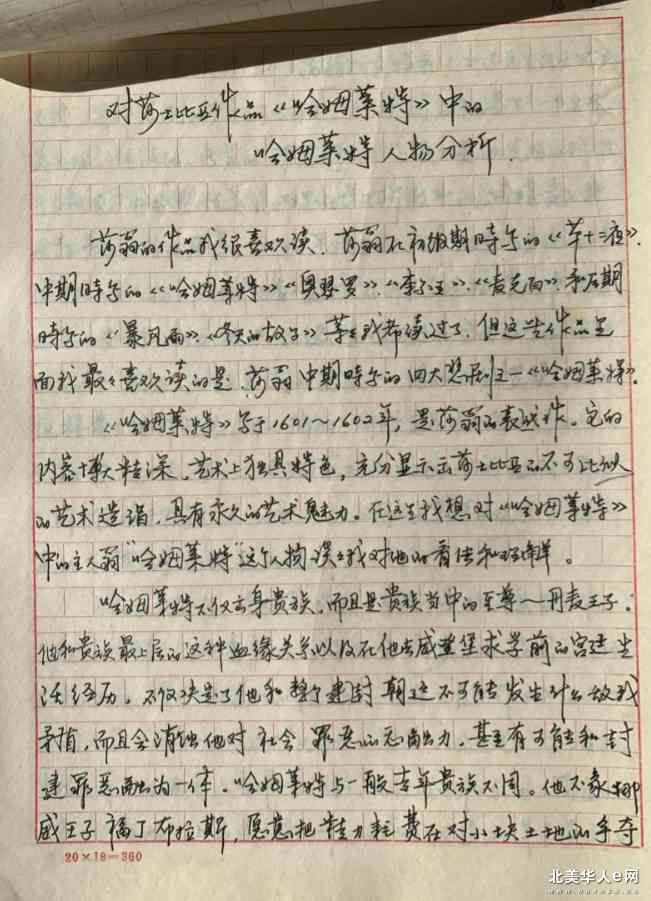 对莎士比亚作品《哈姆莱特》中的
哈姆莱特人物分析.
莎翁的作品我很喜欢读.莎翁在初级期時写的《第十二夜》.
中期時写的《哈姆莱特》《奥瑟罗》.《李尔王》.《麦克白》.和后期
時写的《暴风雨》.《冬天的故事》等等我都读过了.但这些作品里
面我最最喜欢读的是.莎翁中期時写的四大悲剧之一《哈姆莱特》.
《哈姆莱特》写于1601~1602年,是莎翁的表代作。它的
内容博大精深.艺术上独具特色,充分显示出莎士比亚的不可比似
的艺术造诣.具有永久的艺术魅力.在这里我想对《哈姆莱特》
中的主人翁"哈姆莱特"这个人物谈谈我对他的看法和理解。
哈姆莱特不仅出身贵族.而且是贵族当中的至尊—丹麦王子.
他和贵族最上层的这种血缘关系以及在他去威登堡求学前的宫廷生
活经历.不仅决定了他和整个建封朝廷不可能发生什么敌我
矛盾,而且会消蚀他对社会罪恶的 力.甚至有可能和封
建罪恶融为一体.哈姆莱特与一般青年贵族不同。他不象挪
威王子福丁布拉斯,愿意把精力耗费在对小块土地的争夺
20×18=360
北美华人e网